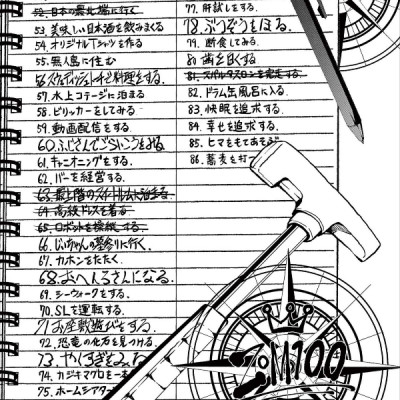 52. 日本の最北端に行く
53. 美味しい日本酒を飲みまくる
54. オリジナルTシャツを作る
55. 無人島に住む
57. 水上コテージに泊まる
58. ピッカーをしてみる
59. 動画配信をする。
60. ふじさんでごらいこうをみる
61. キャニオニングをする。
62. バーを経営する。
63. 最上階のスイートルームに泊まる
64. 高級ドレスを着る
65. ロボットを操縦する。
66. じいちゃんの墓参りに行く。
67. カホンをたたく。
68. おへんろさんになる。
69. シーウォークをする。
70. SLを運転する。
71. お座敷遊びをする。
72. 恐竜の化石を見つける。
73. やくすぎをみる
74. カジキマグロを一本
75. ホームシアター
77. 肝試しをする。
78. ぶつぞうをほる。
79. 断食してみる。
80. 歯を白くする
81. スパルタスロンを完走する。
82. ドラム缶風呂に入る。
83. 快眠を追求する。
84. 幸せを追求する。
85. ヒマをもてあそぶ
86. 蕎麦を打つ
ZOM100